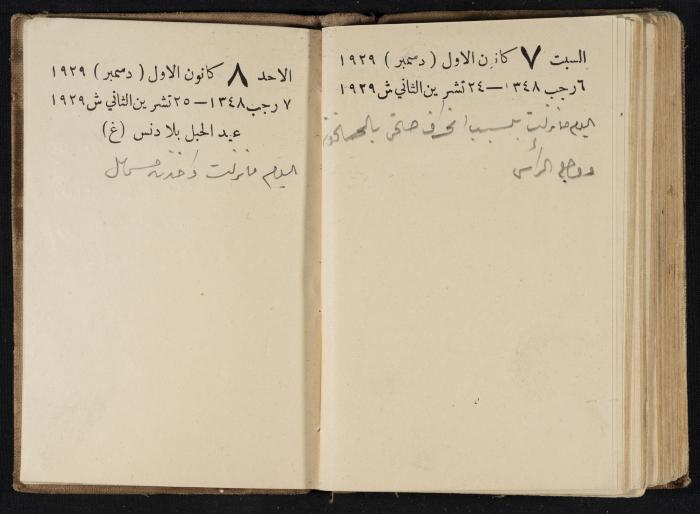 السبت ٧ كانون الاول ( دسمبر ) ١٩٢٩
٦ رجب ١٣٤٨ — ٢٤ تشرين الثاني ش ١٩٢٩
اليوم ما نزلت بسبب انحراف صحتي
ووجع الرأس
الاحد ٨ كانون الاول ( دسمبر ) ١٩٢٩
٧ رجب ١٣٤٨ — ٢٥ تشرين الثاني ش ١٩٢٩
عيد الحبل بلا دنس (غ)
اليوم ما نزلت واخذت مسهل